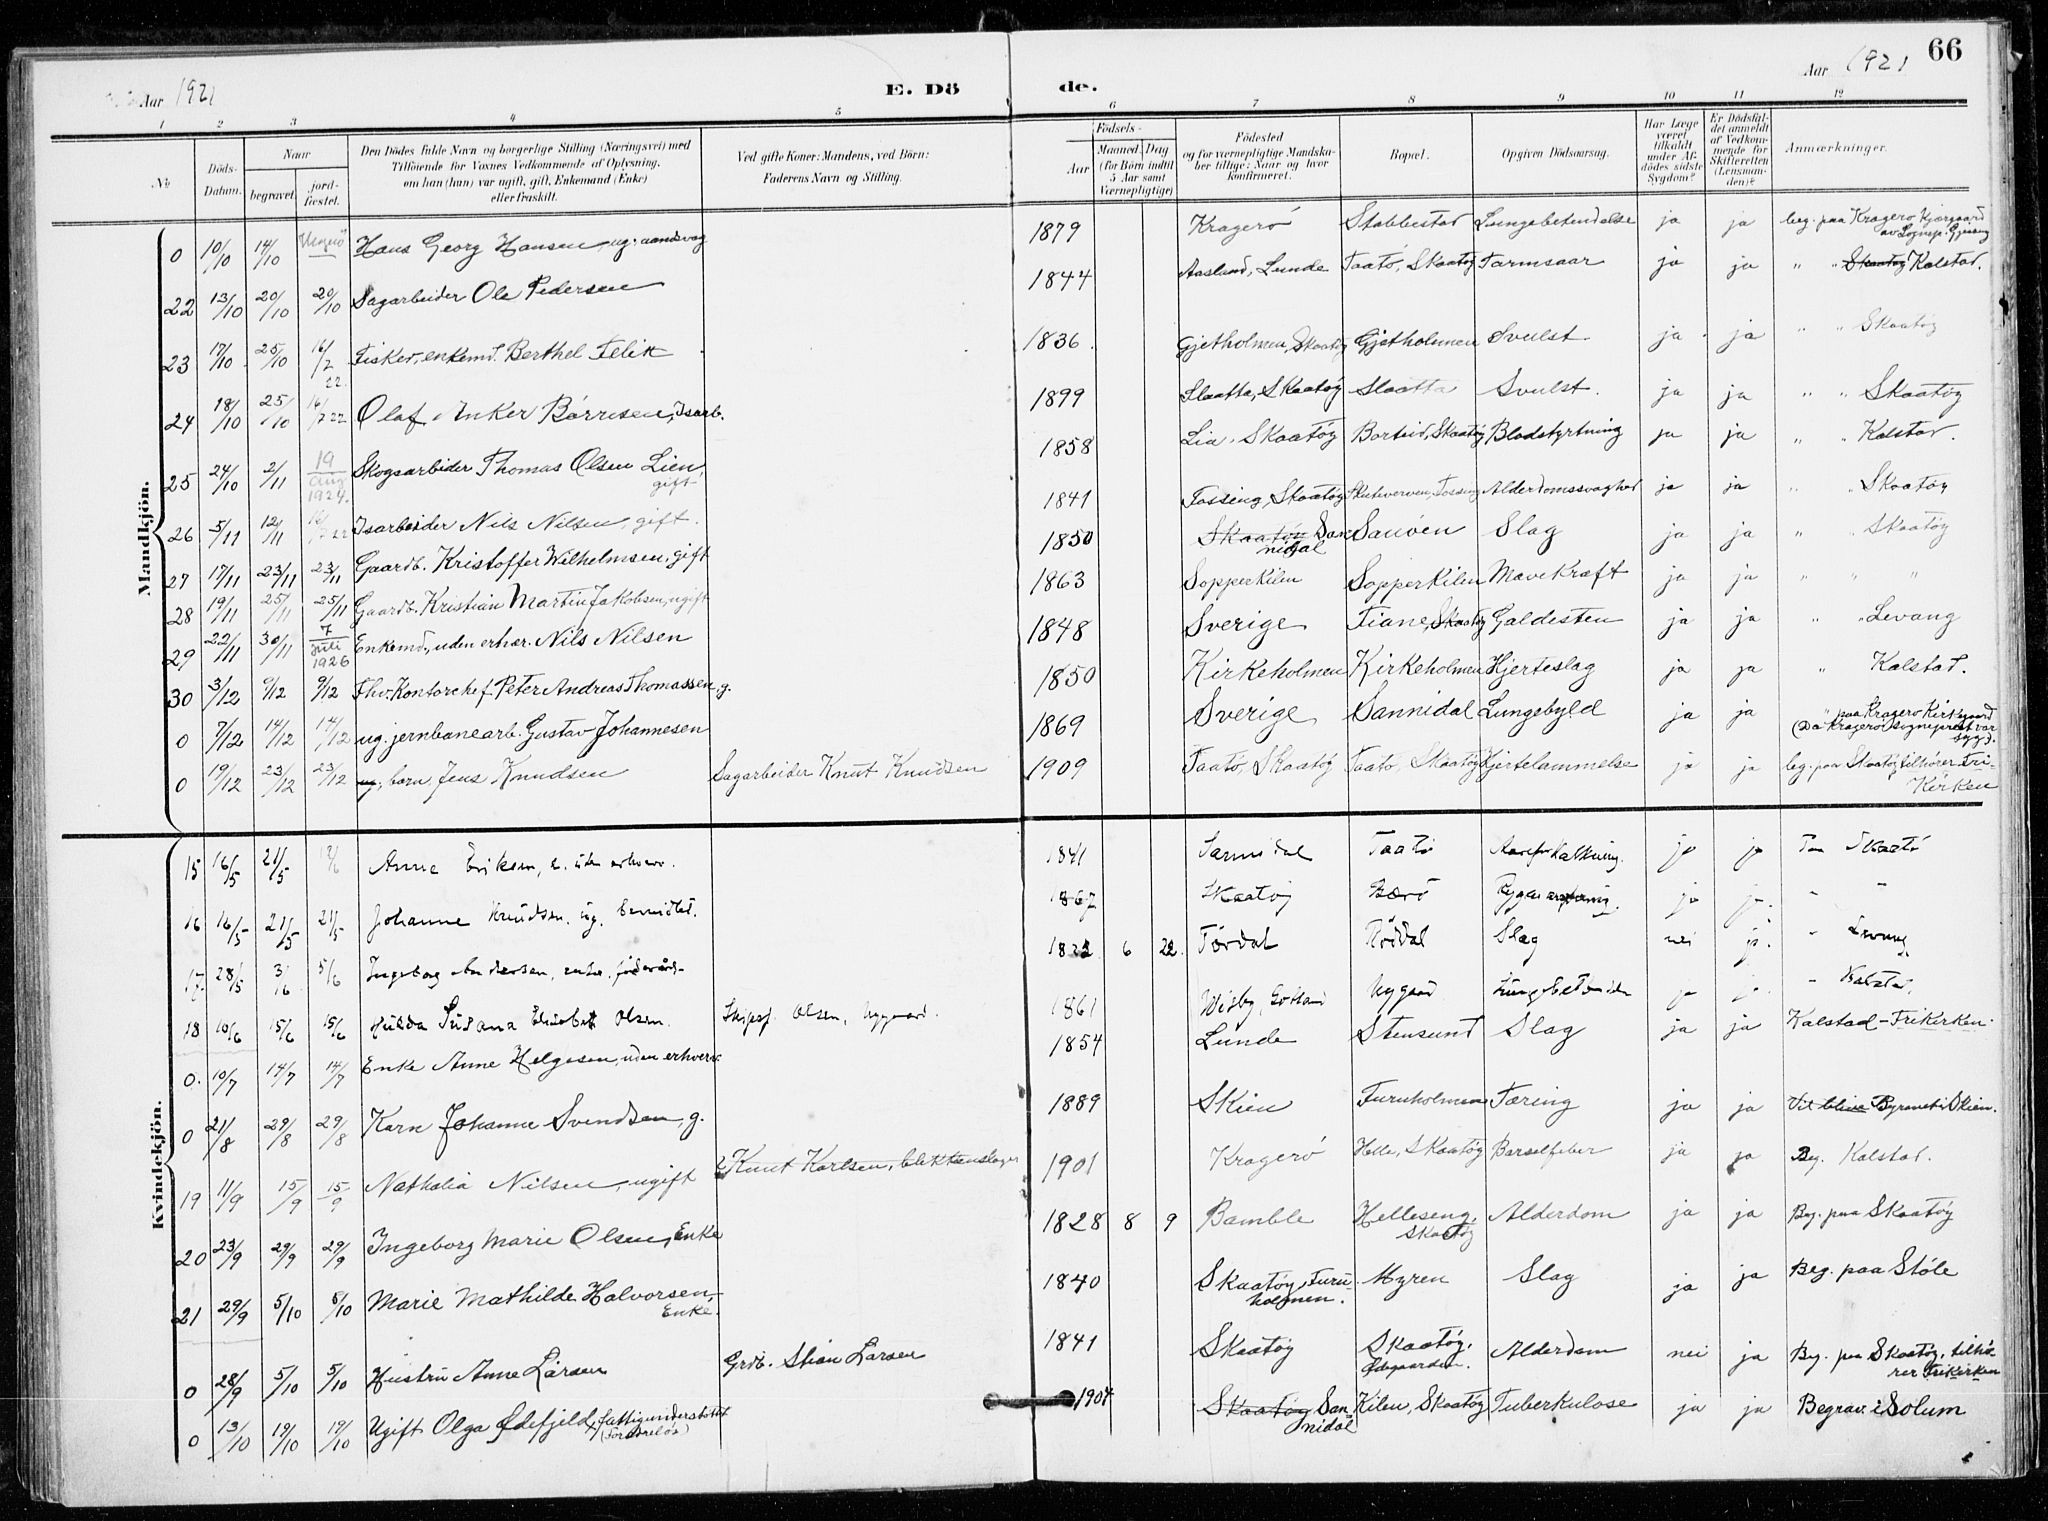 Aar 1921
E. Dö
de.
Aar 1921
66
1 2 3 4 5 6 7 8 9 10 11 12
№
Döds-Datum.
Naar
begravet.
jord-fæstet.
Den Dödes fulde Navn og borgerlige Stilling (Næringsvei) med
Tilföiende for Voxnes Vedkommende af Oplysning,
om han (hun) var ugift, gift, Enkemand (Enke)
eller fraskilt.
Ved gifte Koner: Mandens, ved Börn:
Faderens Navn og Stilling.
Födsels-
Aar
Maaned. Dag.
(for Börn indtil
5 Aar samt
Værnepligtige)
Födested
og for værnepligtige Mandska-
ber tillige: Naar og hvor
Konfirmeret.
Bopæl.
Opgiven Dödsaarsag.
Har Læge
været
tilkaldt
under Af-
dödes sidste
Sygdom?
Er Dödsfal-
det anmeldt
af Vedkom-
mende for
Skifteretten
(Lensman-
den)?
Anmærkninger.
Mandkjön.
0 10/10 14/10 Hans Georg Hansen ug. aandsvag 1879 Kragerö Stabbestad Lungebetendelse ja ja beg. paa Kragerø Kjørgaard
av Sognep. Gjessing
22 13/10 20/10 20/10 Sagarbeider Ole Pedersen 1844 Aasland, Lunde Taatö, Skaatøy Tarmsaar ja ja " " Skaatøy Kalstad.
23 17/10 25/10 16/7 22. Fisker, enkemd. Berthel Felix 1836 Gjetholmen, Skaatøy Gjetholmen Svulst ja ja " " Skaatøy
24 18/10 25/10 16/7 22 Olaf Anker Børresen, Isarb. 1899 Slaatta, Skaatøy Slaatta Svulst. ja ja " " Skaatøy
25 24/10 2/11 19 Aug 1924. Skogsarbeider Thomas Olsen Lien, gift 1858 Lia, Skaatøy Borteid, Skaatøy Blodstyrtning ja ja " " Kalstad.
26 5/11 12/11 16/7 22 Isarbeider Nils Nilsen, gift. 1841 Fossing, Skaatøy Fossing Alderdomssvaghed ja ja " " Skaatøy
27 17/11 23/11 23/11 Gaardb. Kristoffer Wilhelmsen, gift 1850 Skaatøy Sannidal Slag ja ja " " Skaatøy
28 19/11 25/11 25/11 Gaardb. Kristian Martin Jakobsen, ugift 1863 Sopperkilen Sopperkilen Mavekræft ja ja " " "
29 22/11 30/11 7 Juli 1926 Enkemd., uden erhver. Nils Nilsen 1848 Sverige Tiane, Skaatøy Galdesten ja ja " " Levang
30 3/12 9/12 9/12 Fhv. Kontorchef Peter Andreas Thomassen, g. 1850 Kirkeholmen Kirkeholmen Hjerteslag ja ja " Kalstad.
0 7/12 14/12 14/12 ug. jernbanearb. Gustav Johannesen 1869 Sverige Sannidal Lungebyld ja ja " paa Kragerø Kirkgaard
(Da Kragerø sogneprest var syg).
0 19/12 23/12 23/12 ug, barn, Jens Knudsen Sagarbeider Knut Knudsen 1909 Taatø, Skaatøy Taatø, Skaatøy Hjertelammelse ja ja beg. paa Skaatøy, tilhører Fri-
Kirken
Kvindekjön.
15 16/5 21/5 Anne Eriksen, e. uden erhverv. 1841 Sannidal Taatø Aareforkalkning. ja ja Paa Skaatø
16 16/5 21/5 21/5 Johanne Knudsen, ug. 1867 Skaatøy Bærø ja ja. " "
17 28/5 3/6 5/6 Ingeborg Andersen, enke, 6 22. Tørdal Slag nei ja. " Levang
18 10/6 15/6 15/6 Hulda Susana Elisabet Olsen. Skipsf. Olsen, Nygaard. 1861 Wisby, Gotland Nygaard Lungebetændelse ja ja. " Kalstad,
0. 10/7 14/7 14/7 Enke Anne Helgesen, uden erhverv 1854 Lunde Stensund Slag ja ja Kalstad-Frikirken.
0 21/8 29/8 29/8 Karn Johanne Svendsen, g. 1889 Skien Furuholmen Tæring ja ja Skien.
19 11/9 15/9 15/9 Nathalia Nilsen, ugift ? Knut Karlsen, blikkenslager 1901 Kragerø Helle, Skaatøy Barselfeber ja ja Beg. Kalstad.
20 23/9 29/9 29/9 Ingeborg Marie Olsen, Enke 1828 8 9 Bamble Helleseng, Skaatøy Alderdom ja ja Beg. paa Skaatøy
21 29/9 5/10 5/10 Marie Mathilde Halvorsen, Enke. 1840 Skaatøy, Furu-holmen. Myren Slag ja ja Beg. paa Støle
0 28/9 5/10 5/10 Hustru Anne Larsen Grdb. Stian Larsen 1841 Skaatøy Skaatøy, Ødegaarden. Alderdom nei ja Beg. paa Skaatøy, tilhø-
rer Frikirken
0 13/10 19/10 19/10 Ugift Olga Ødefjeld, fattigunderstøttet (Forældreløs) 1904 Skaatøy Sannidal Kilen, Skaatøy Tuberkulose ja ja Begrav. i Solum